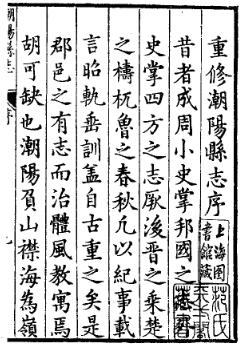 重修潮陽縣志序
昔者成周小史掌邦國之志外
史掌四方之志厥後晋之乘楚
之檮杌魯之春秋凡以紀事載
言昭軌垂訓盖自古重之矣是
郡邑之有志而治體風教寓焉
胡可缺也潮陽負山襟海為嶺
潮陽縣志
序
上海圖書館藏